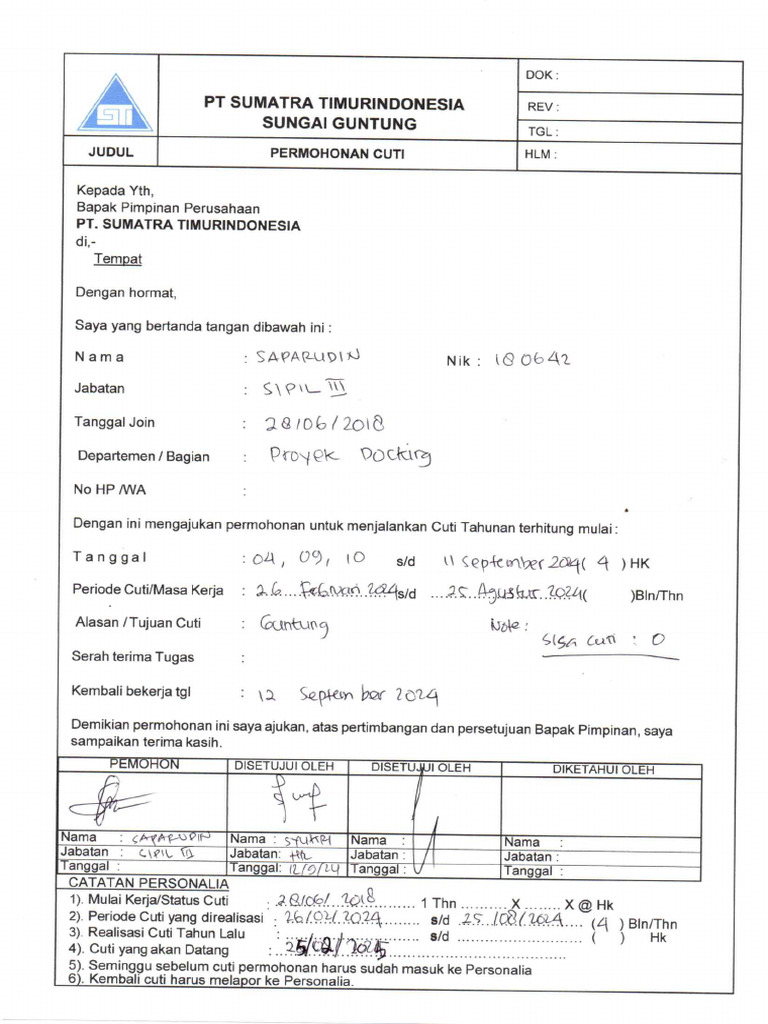 DOK :
STI
PT SUMATRA TIMURINDONESIA
SUNGAI GUNTUNG
REV :
TGL :
JUDUL PERMOHONAN CUTI HLM :
Kepada Yth,
Bapak Pimpinan Perusahaan
PT. SUMATRA TIMURINDONESIA
di,-
Tempat
Dengan hormat,
Saya yang bertanda tangan dibawah ini :
N a m a : SAPARUDIN Nik : 180642
Jabatan : SIPIL III
Tanggal Join : 28/06/2018
Departemen / Bagian : Proyek Docking
No HP /WA :
Dengan ini mengajukan permohonan untuk menjalankan Cuti Tahunan terhitung mulai :
T a n g g a l : 04, 09, 10 s/d 11 September 2024 ( 4 ) HK
Periode Cuti/Masa Kerja : 26 Februari 2024 s/d 25 Agustus 2024 ( )Bln/Thn
Alasan / Tujuan Cuti : Guntung Note :
Sisa cuti : 0
Serah terima Tugas :
Kembali bekerja tgl : 12 September 2024
Demikian permohonan ini saya ajukan, atas pertimbangan dan persetujuan Bapak Pimpinan, saya
sampaikan terima kasih.
PEMOHON DISETUJUI OLEH DISETUJUI OLEH DIKETAHUI OLEH
Nama : SAPARUDIN Nama : SYUKRI Nama : Nama :
Jabatan : SIPIL III Jabatan: Jabatan : Jabatan :
Tanggal : Tanggal: 12/9/24 Tanggal : Tanggal :
CATATAN PERSONALIA
1). Mulai Kerja/Status Cuti : 28/06/2018 1 Thn X X @ Hk
2). Periode Cuti yang direalisasi : 26/02/2024 s/d 25/08/2024 (4 ) Bln/Thn
3). Realisasi Cuti Tahun Lalu : s/d ( ) Hk
4). Cuti yang akan Datang : 25/02/2025
5). Seminggu sebelum cuti permohonan harus sudah masuk ke Personalia
6). Kembali cuti harus melapor ke Personalia.